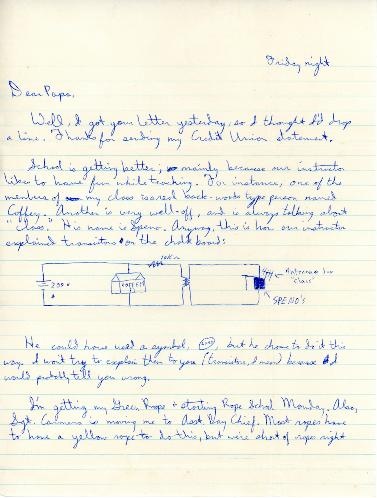 Friday night
Dear Papa,
Well, I got your letter yesterday, so I thought I'd drop
a line. Thanks for sending my Credit Union statement.
School is getting better; mainly because our instructor
likes to have fun while teaching. For instance, one of the
members of my class is a real back-woods type person named
Coffey. Another is very well-off, and is always talking about
"Class." His name is Speno. Anyway, this is how our instructor
explained transistors on the chalk board:
COFFEY
"Class"
SPENO'S
He could have used a symbol, but he chose to do it this
way. I won't try to explain them to you (transistors, I mean) because I
would probably tell you wrong.
I'm getting my Green Rope + starting Rope School Monday. Also,
Sgt. is moving me to Asst. Bay Chief. Most ropes have
to have a yellow rope to do this, but we're short of ropes right